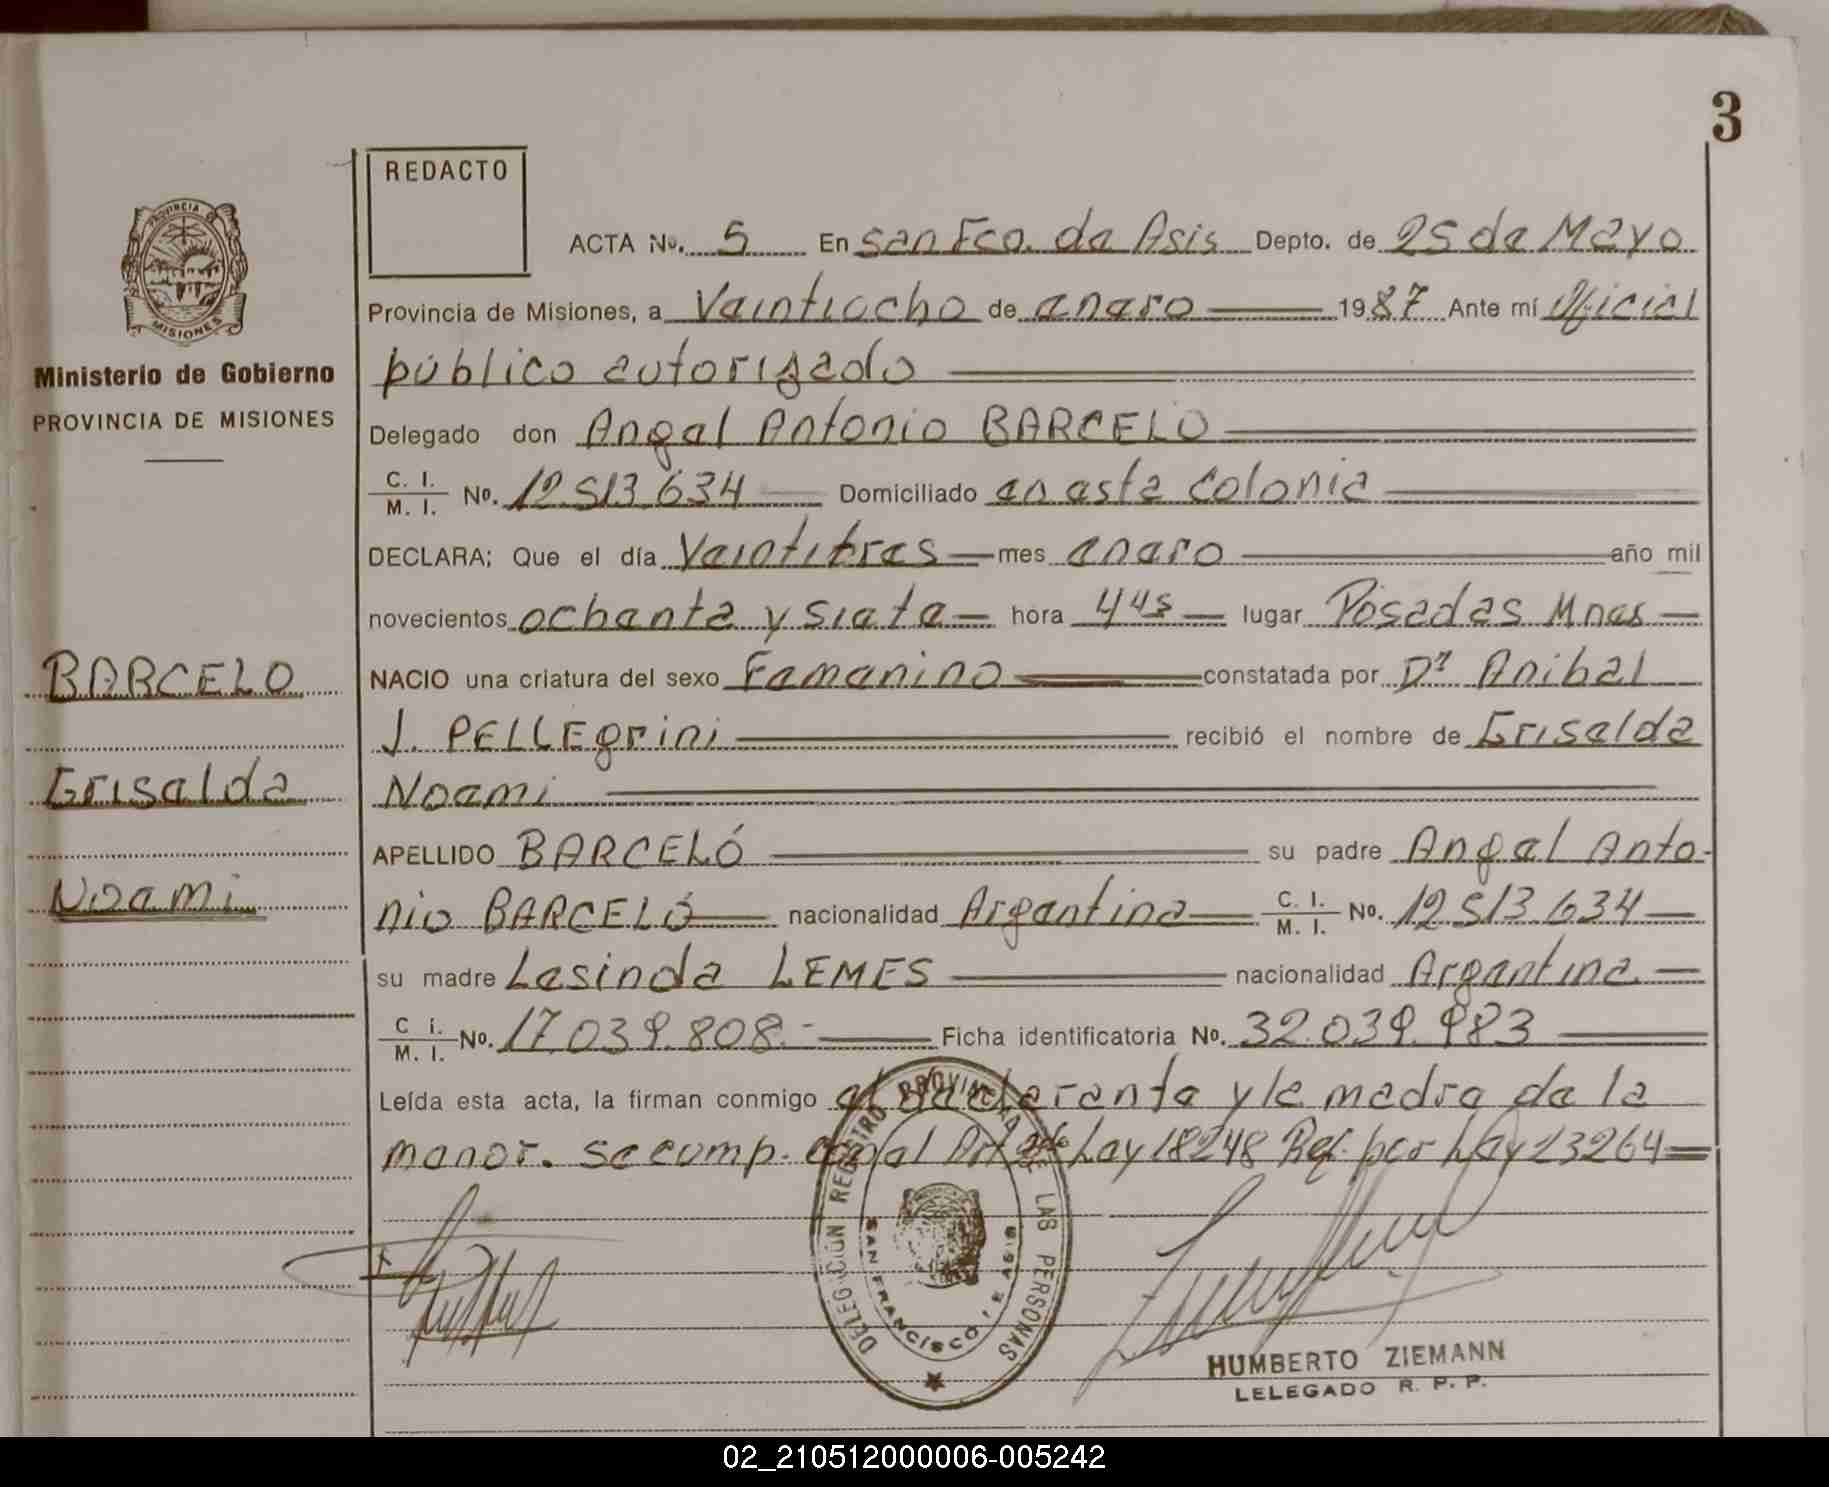 3
REDACTO
PROVINCIA D
MISIONES
Ministerio de Gobierno
PROVINCIA DE MISIONES
BARCELO
Griselda
Noemi
ACTA No. 5 En San Fco. de Asis Depto. de 25 de Mayo
Provincia de Misiones, a Veintiocho de enero 1987 Ante mí Oficial
público autorizado
Delegado don Angel Antonio BARCELO
C. I. / M. I. No. 12.513.634 Domiciliado en esta Colonia
DECLARA; Que el día Veintitres mes enero año mil
novecientos ochenta y siete hora 4 45 lugar Posadas Mnes
NACIO una criatura del sexo Femenino constatada por Dr Anibal
J. PELLEgrini recibió el nombre de Griselda
Noemi
APELLIDO BARCELÓ su padre Angel Anto-
nio BARCELÓ nacionalidad Argentina C. I. / M. I. No. 12.513.634
su madre Lesinda LEMES nacionalidad Argentina
C i. / M. I. No. 17.039.808.- Ficha identificatoria No. 32.039.983
Leída esta acta, la firman conmigo el declarante y la madre de la
menor. Se cump. con el Art 2do Ley 18248 Ref. por Ley 23264
DELEGACIÓN REGISTRO PROVINCIAL DE LAS PERSONAS
SAN FRANCISCO DE ASIS
HUMBERTO ZIEMANN
LELEGADO R. P. P.
02_210512000006-005242